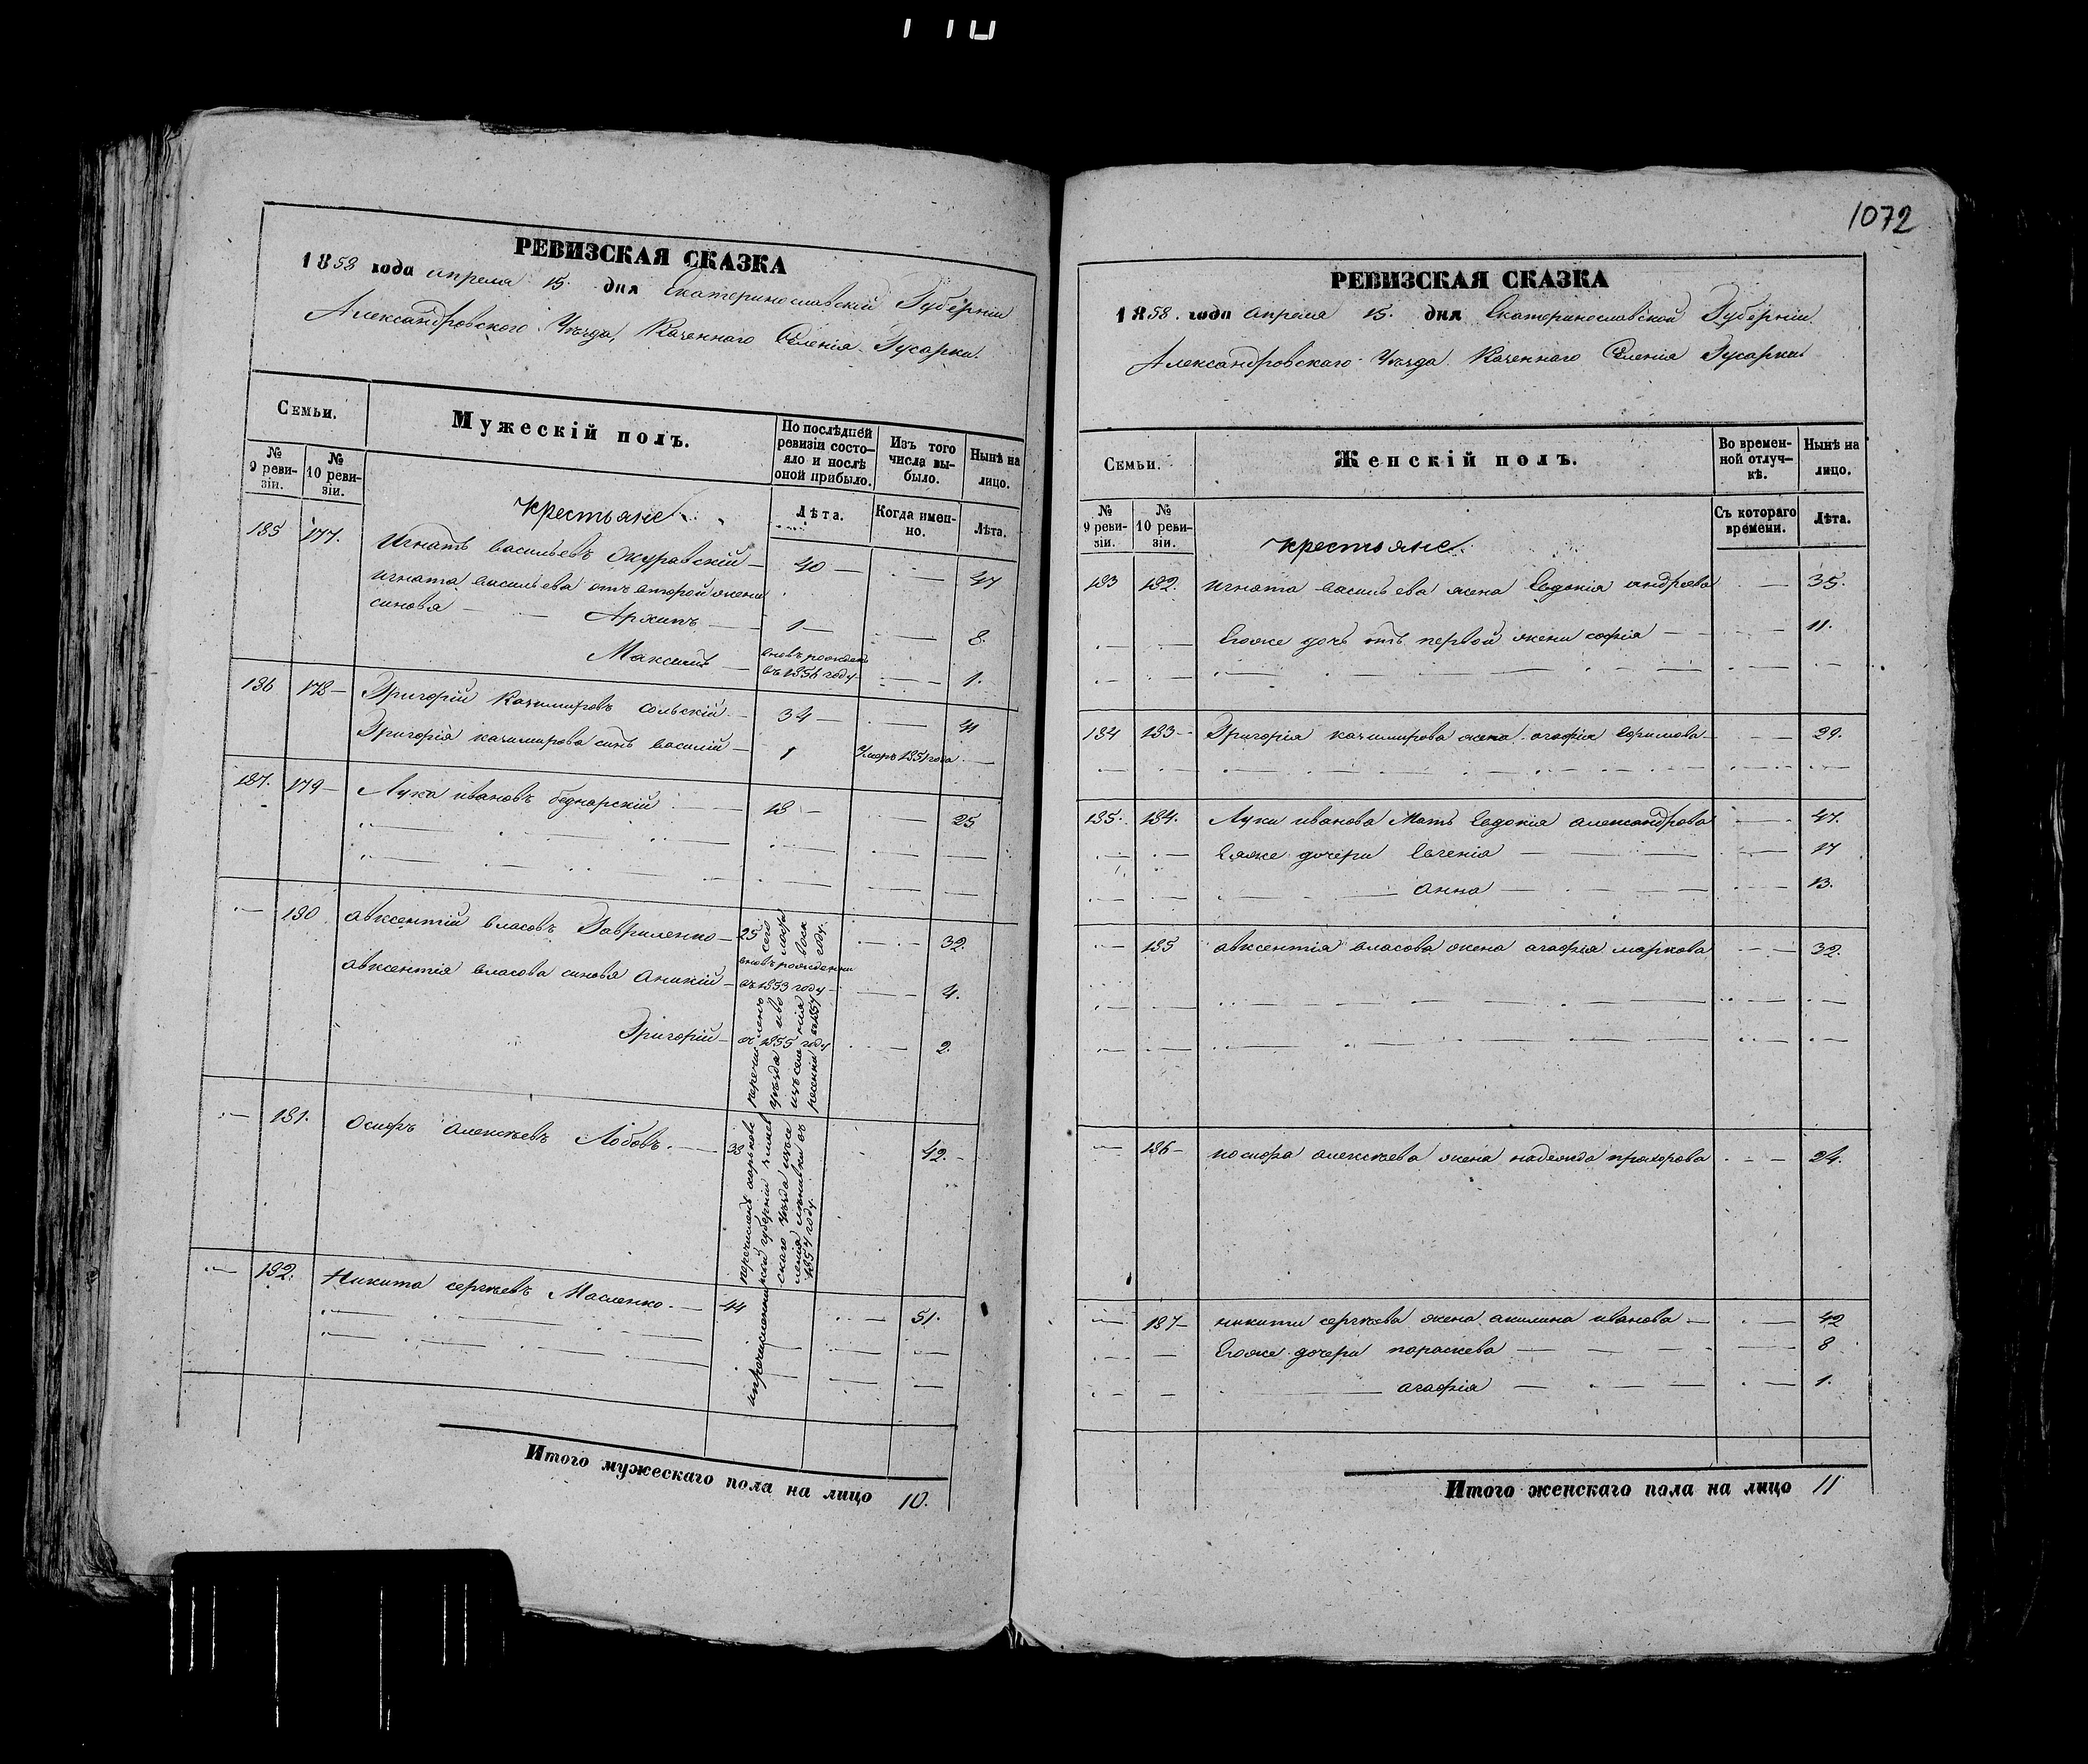 РЕВИЗСКАЯ СКАЗКА
1858 года апреля 15. дня Екатеринославской Губерніи
Александровского Уѣзда, Казеннаго Селенія Гусарки.
Семьи.
Мужескій полъ.
По послѣдней ревизіи состо-
яло и послѣ оной прибыло.
Изъ того числа вы-
было.
Нынѣ на лицо.
№ 9 реви-
зіи.
№ 10 реви-
зіи.
Лѣта.
Когда имен-
но.
Лѣта.
Крестьяне
185 177. Игнатъ васильевъ 40 47
игната васильева отъ второй жены
синовя Архипъ 1 8.
Максимъ вновь рожденъ въ 1856 году 1.
186 178 Григорій казимировъ сольскій 34 41
Григорія казимирова синъ василій 1 Умеръ 1851 года
187. 179 Лука ивановъ беднарскій 18 25
180 авксентій власовъ Гавриленко 25 32.
авксентія власова синовя аникій вновь рожденни въ 1853 году 4.
Григорій въ 1855 году 2.
181. осипъ алексѣевъ Лобовъ. 35 42.
перечисленъ харьковс
кой губерніи
скаго уѣзда изъ се
ленія
1857 году
182. Никита сергѣевъ Масленко. 44 51.
Итого мужескаго пола на лицо 10.
1072
РЕВИЗСКАЯ СКАЗКА
1858. года апреля 15. дня Екатеринославской Губерніи.
Александровскаго Уѣзда Казеннаго Селенія Гусарки
Семьи.
Женскій полъ.
Во времен-
ной отлуч-
кѣ.
Нынѣ на лицо.
№ 9 реви-
зіи.
№ 10 реви-
зіи.
Съ котораго времени.
Лѣта.
Крестьяне.
183 182. игната васильева жена Евдокія андреева 35.
Егоже дочь отъ первой жени софія 11.
184 183 Григорія казимирова жена агафія Ефимова 29.
185. 184. Луки иванова Мать Евдокія александрова 47.
Еяже дочери Евгенія 17
анна 13.
185 авксентія власова жена агафія маркова 32.
186 иосифа алексѣева жена надежда прохорова 24.
187 никити сергѣева жена акилина иванова 42
Егоже дочери параскева 8
агафія 1.
Итого женскаго пола на лицо 11